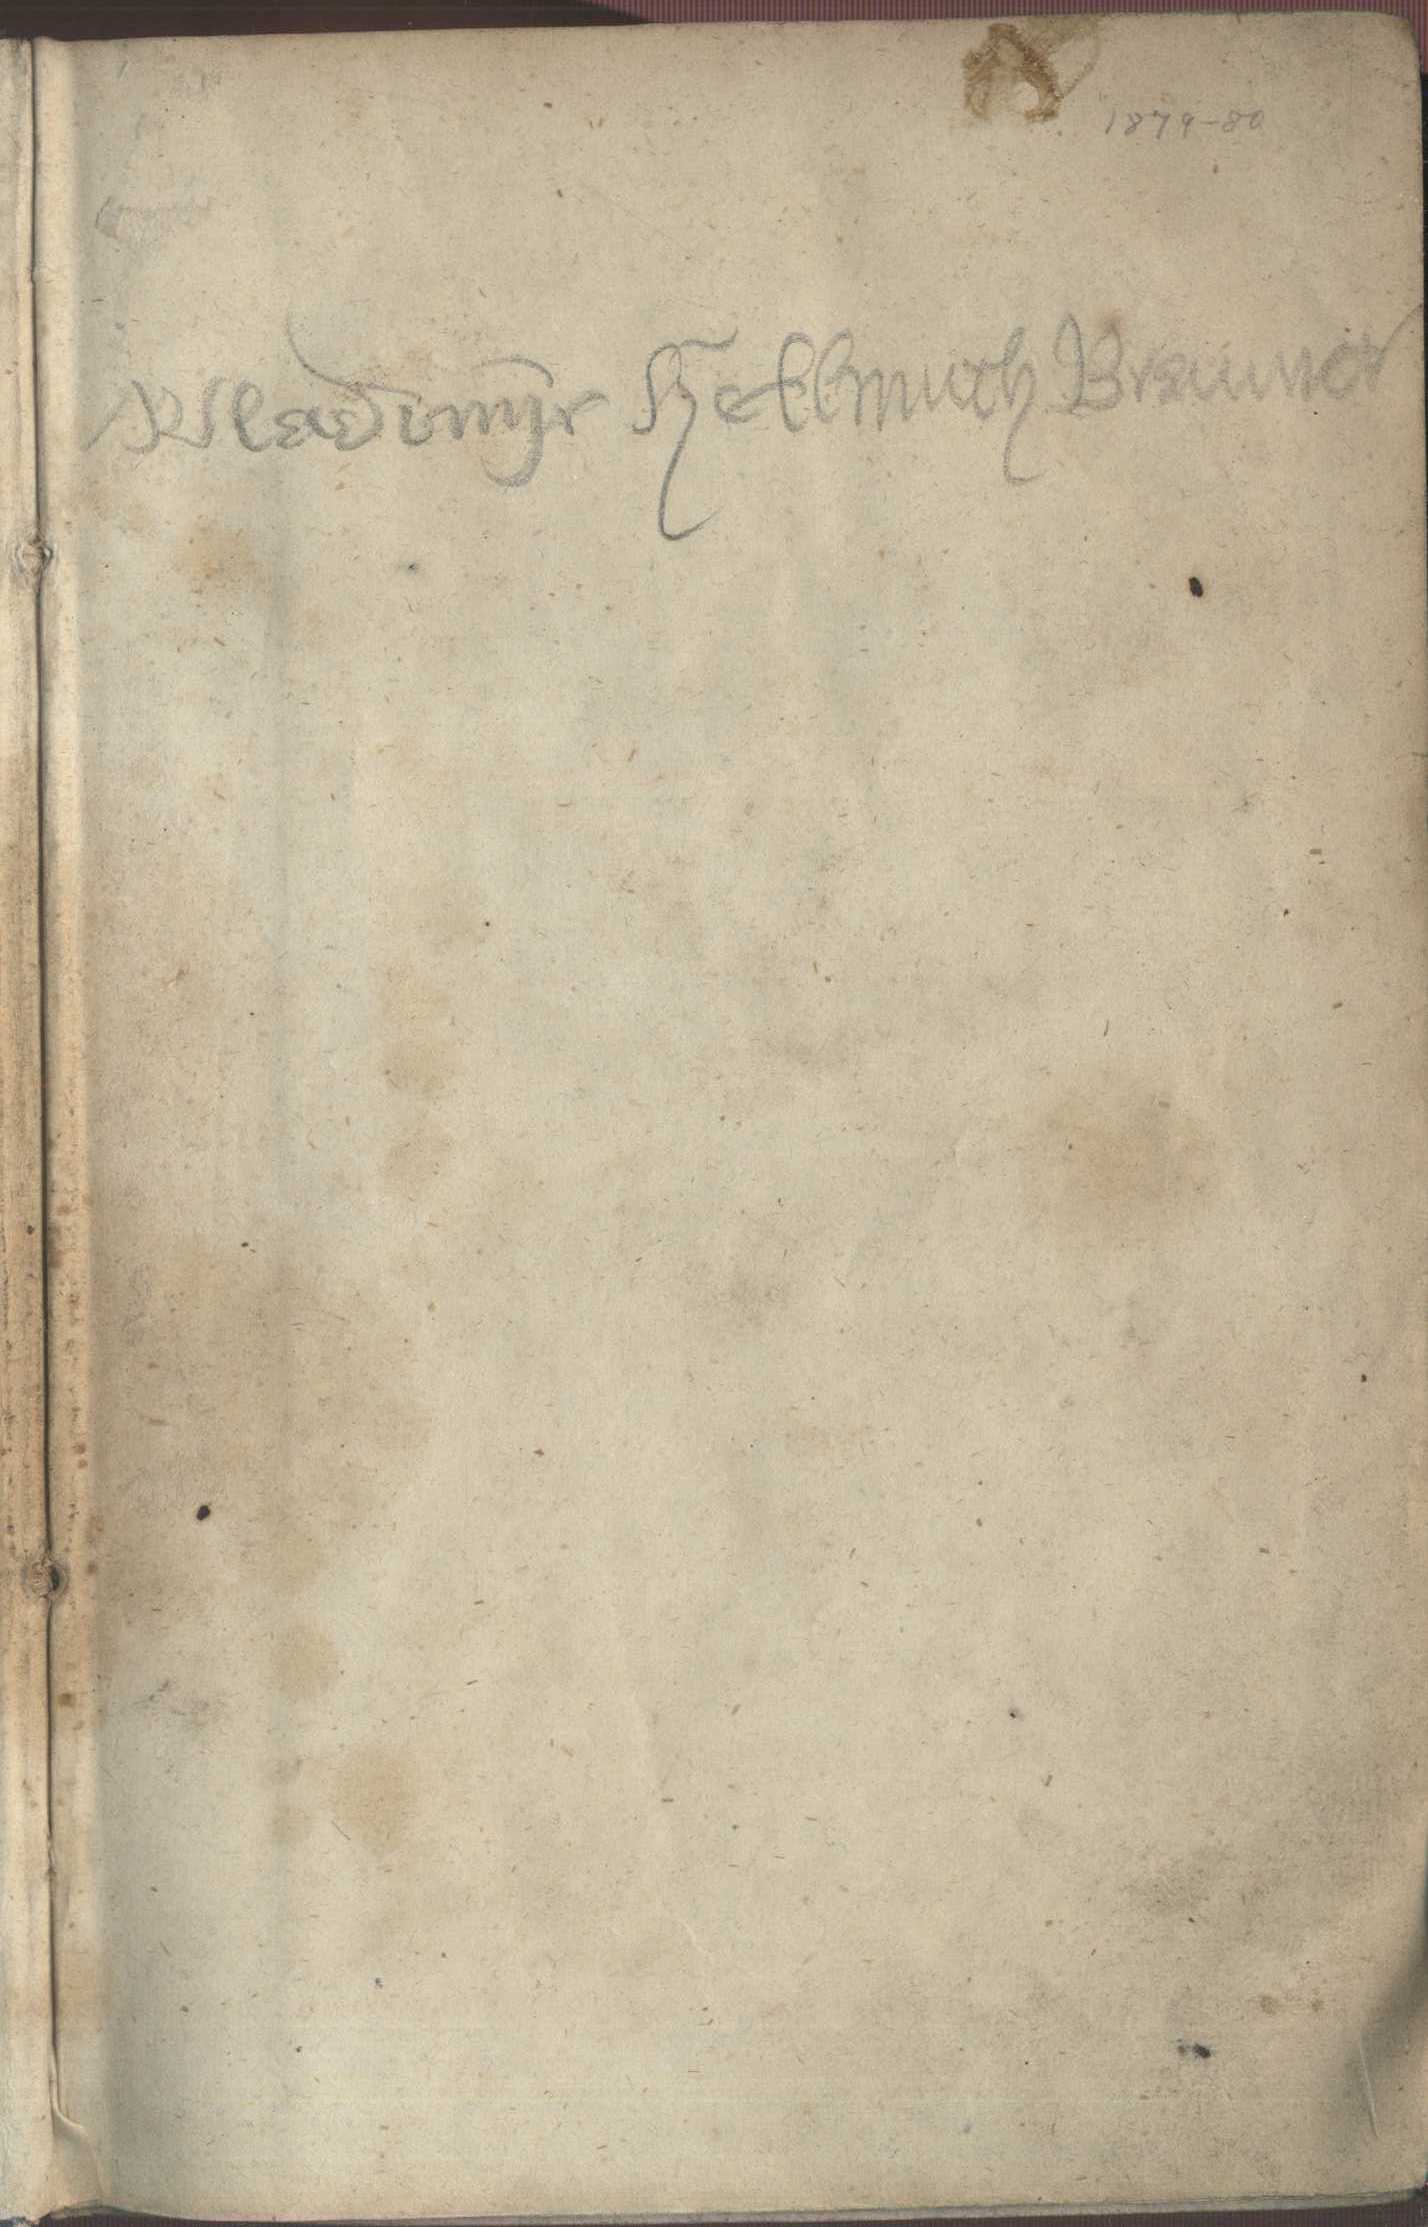 1879-80
Wladimyr Hellmuth Brauner